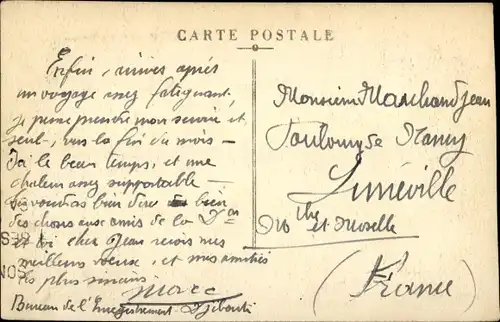 CARTE POSTALE
Enfin, arrivé après
un voyage assez fatiguant,
je pense prendre mon service et
seul, vers la fin du mois —
J'ai le beau temps, et une
chaleur assez supportable —
voudras bien dire bien
des choses aux amis de la
et toi cher Jean reçois mes
meilleurs voeux, et mes amitiés
les plus sincères
Marc
Bureau de l'Enregistrement - Djibouti
Monsieur Marchand Jean
Faubourg de Nancy
Lunéville
Mthe et Moselle
(France)